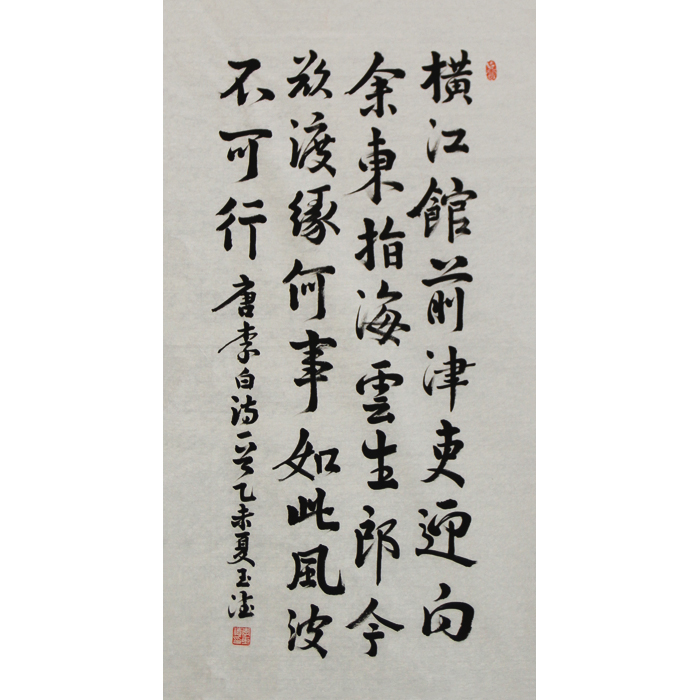 橫江館前津吏迎向
余東指海雲生郎今
欲渡緣何事如此風波
不可行 唐李白詩一首乙未夏玉法